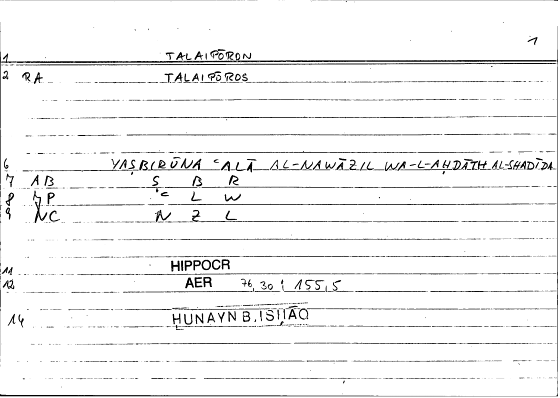 1
1 TALAIPŌRON
2 RA TALAIPŌROS
6 YAṢBIRŪNA ʿALĀ AL-NAWĀZIL WA-L-AḤDĀTH AL-SHADĪDA
7 AB Ṣ B R
8 LP ʿ L W
9 NC N Z L
11 HIPPOCR
12 AER 76,30 : 155,5
14 ḤUNAYN B. ISḤĀQ